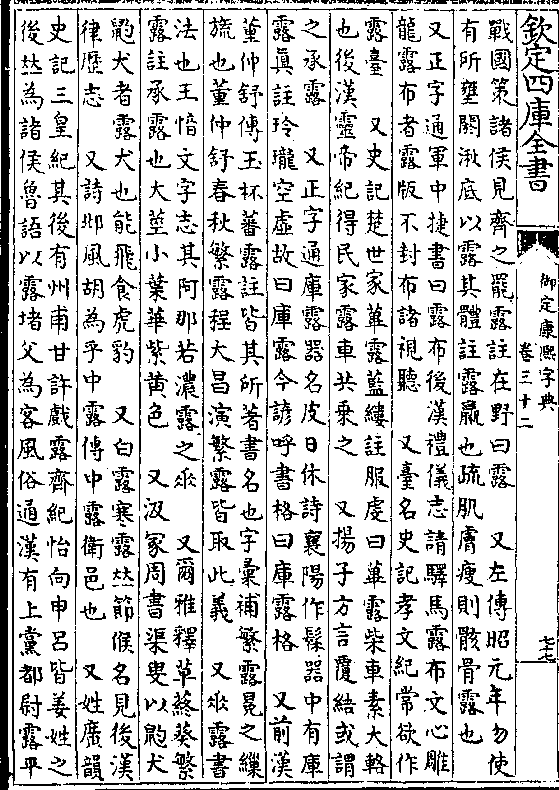 欽定四庫全書
御定康熙字典
卷三十二
七七
戰國策諸侯見齊之罷露註在野曰露　又左傳昭元年勿使
有所壅閼湫底以露其體註露羸也疏肌膚瘦則骸骨露也
又正字通軍中捷書曰露布後漢禮儀志請驛馬露布文心雕
龍露布者露版不封布諸視聽　又臺名史記孝文紀常欲作
露臺　又史記楚世家蓽露藍縷註服虔曰蓽露柴車素大輅
也後漢靈帝紀得民家露車共乗之　又揚子方言覆結或謂
之承露　又正字通庫露器名皮日休詩襄陽作髹器中有庫
露眞註玲瓏空虛故曰庫露今諺呼書格曰庫露格　又前漢
董仲舒傳玉杯蕃露註皆其所著書名也字彙補繁露冕之繅
旒也董仲舒春秋繁露程大昌演繁露皆取此義　又𠂹露書
法也王愔文字志其阿那若濃露之𠂹　又爾雅釋草蔠葵繁
露註承露也大莖小葉華紫黄色　又汲冢周書渠叟以䶂犬
䶂犬者露犬也能飛食虎豹　又白露寒露𠀤節候名見後漢
律歷志　又詩邶風胡為乎中露傳中露衛邑也　又姓廣韻
史記三皇紀其後有州甫甘許戲露齊紀怡向申呂皆姜姓之
後𠀤為諸侯魯語以露堵父為客風俗通漢有上黨都尉露平